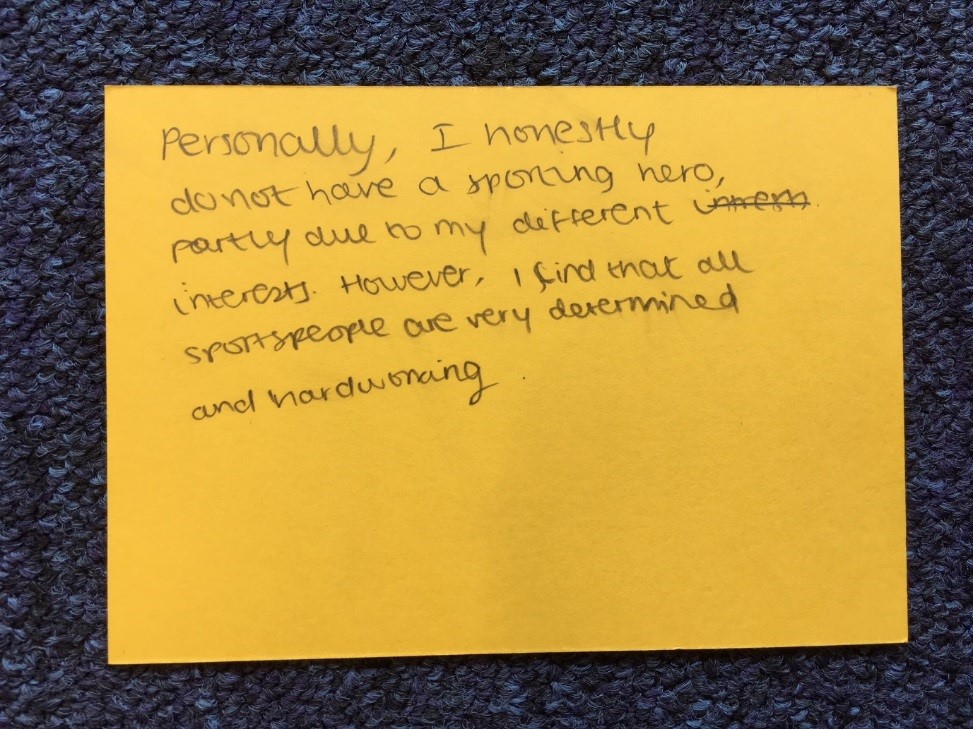 Personally, I honestly
do not have a sporting hero,
partly due to my different
interests. However, I find that all
sportspeople are very determined
and hardworking.